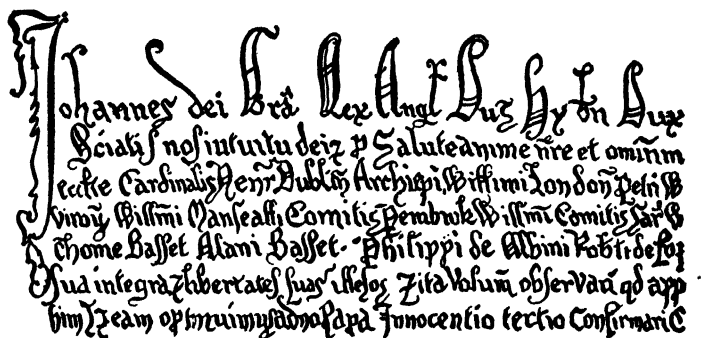 Johannes dei Gra Rex Angl Dux Hybn Dux
Sciatis nos intuitu dei & p Salute anime nre et omnim
eccle Cardinalis Henr Dublin Archiepi, Willimi London Petri W
Willmi Marscalli Comitis Pembrok Willmi Comitis Sar W
Thome Basset Alani Basset. Philippi de Albini Robti de Rop
sua integra & libertates suas illesas & ita Volum observari qd app
eam optinuimus a dno Papa Innocentio tertio Confirmari E